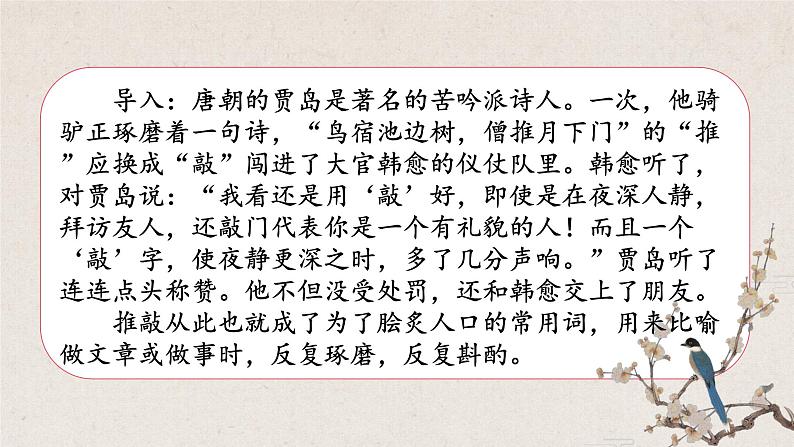 导入：唐朝的贾岛是著名的苦吟派诗人。一次，他骑
驴正琢磨着一句诗，“鸟宿池边树，僧推月下门”的“推
”应换成“敲”闯进了大官韩愈的仪仗队里。韩愈听了，
对贾岛说：“我看还是用‘敲’好，即使是在夜深人静，
拜访友人，还敲门代表你是一个有礼貌的人！而且一个
‘敲’字，使夜静更深之时，多了几分声响。”贾岛听了
连连点头称赞。他不但没受处罚，还和韩愈交上了朋友。
推敲从此也就成了为了脍炙人口的常用词，用来比喻
做文章或做事时，反复琢磨，反复斟酌。